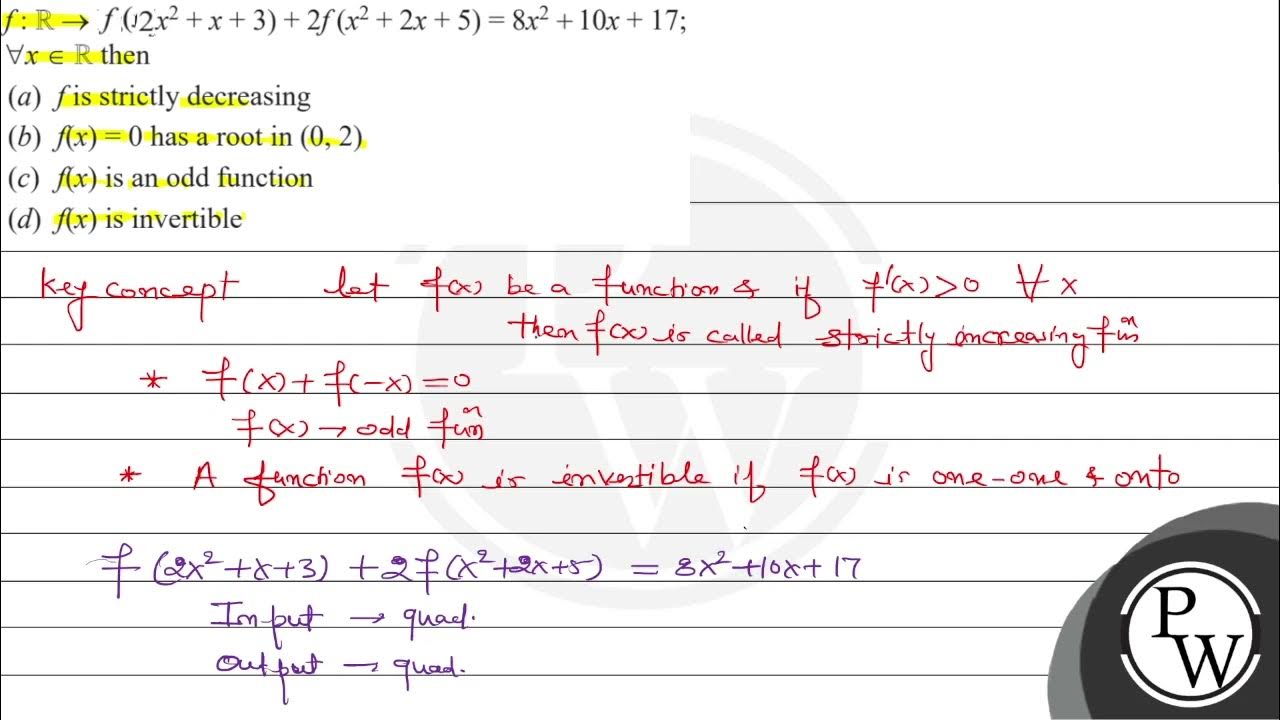 f : ℝ → f (2x² + x + 3) + 2f (x² + 2x + 5) = 8x² + 10x + 17;
∀x ∈ ℝ then
(a) f is strictly decreasing
(b) f(x) = 0 has a root in (0, 2)
(c) f(x) is an odd function
(d) f(x) is invertible
Key concept let f(x) be a function & if f'(x) > 0 ∀ x
then f(x) is called strictly increasing funⁿ
* f(x) + f(-x) = 0
f(x) → odd funⁿ
* A function f(x) is invertible if f(x) is one-one & onto
f (2x² + x + 3) + 2f (x² + 2x + 5) = 8x² + 10x + 17
Input → quad.
Output → quad.
P
W